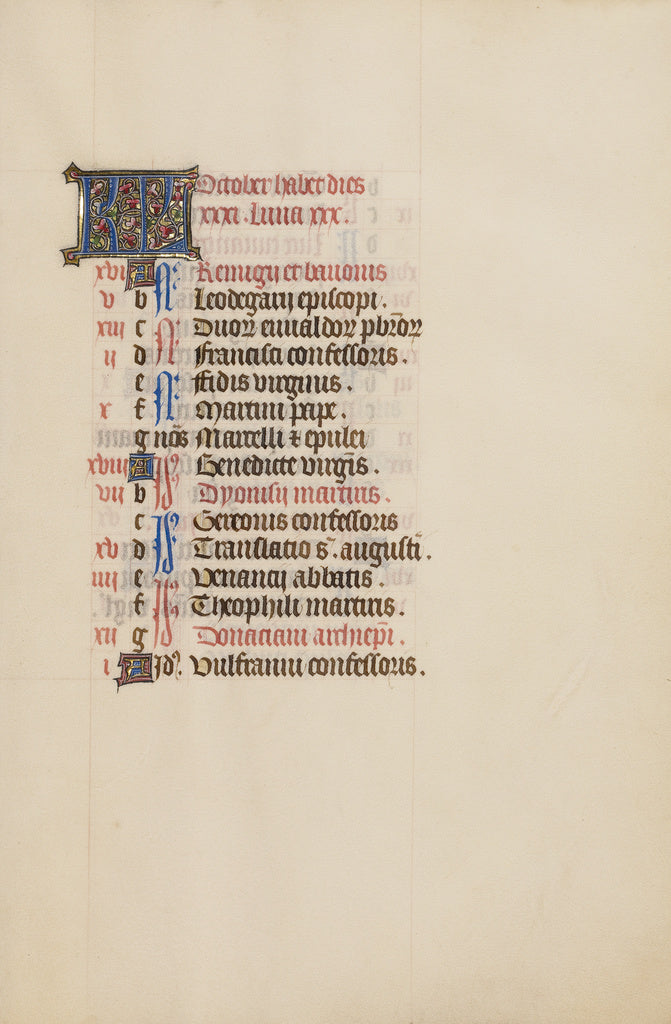 KL October habet dies
xxxi. Luna xxx.
xvi A N Remigij et bauonis
v b Leodegarij episcopi.
xiii c N Duoꝝ euualdoꝝ pbr̄oꝝ
ii d Francisci confessoris.
e N Fidis virginis.
x f Martini pape.
g nōs Marcelli ⁊ epulei
xviii A Js Benedicte virgīs.
vii b Dyonisij martiris.
c Js Gereonis confessoris
xv d Translatio s. augusti.
iiii e Js Venancij abbatis.
f Theophili martiris.
xii g Donaciani archiep̄i.
i A Jd. Vulfranni confessoris.